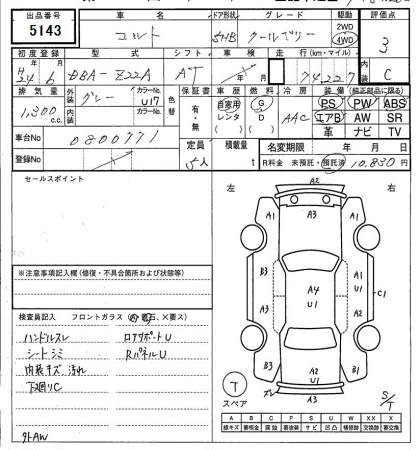 出品番号 車名 ドア形状 グレード 駆動 評価点
5143 コルト 5HB クールベリー 2WD 4WD 3
初度登録 型式 シフト 車検 走行(km・マイル) 内装
H24年 6月 DBA-Z22A AT 74,227 C
排気量 外装 カラーNo. 色替 保証書 車歴 燃料 冷房 装備(純正部品に限る)
1,300 c.c. グレー U17 有・無 自家用 G AAC PS PW ABS
内装 カラーNo. レンタ D エアB AW SR
( ) ( ) 革 ナビ TV
車台No 0800771 定員 積載量 名変期限 年 月 日
登録No 5人 t R料金 未預託・預託済 10,830円
セールスポイント 左 右
A2
A3
A1 A1
B3 A4 A1
A3 U1 U1 C1
A2
B3 A2 B1
U1
ズレ A3
※注意事項記入欄(修復・不具合箇所および状態等)
検査員記入 フロントガラス
ハンドルスレ ロアサポートU
シートシミ RパネルU
内装キズ、汚れ
下廻りC
外AW
T
スペア
S/T
A B C P S U W X XX
線キズ 要板金 腐蝕 要塗装 サビ 凹凸 補修跡 交換跡 要交換